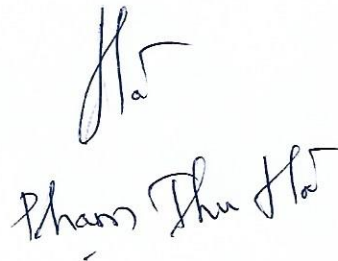 Hà
Phạm Thu Hà